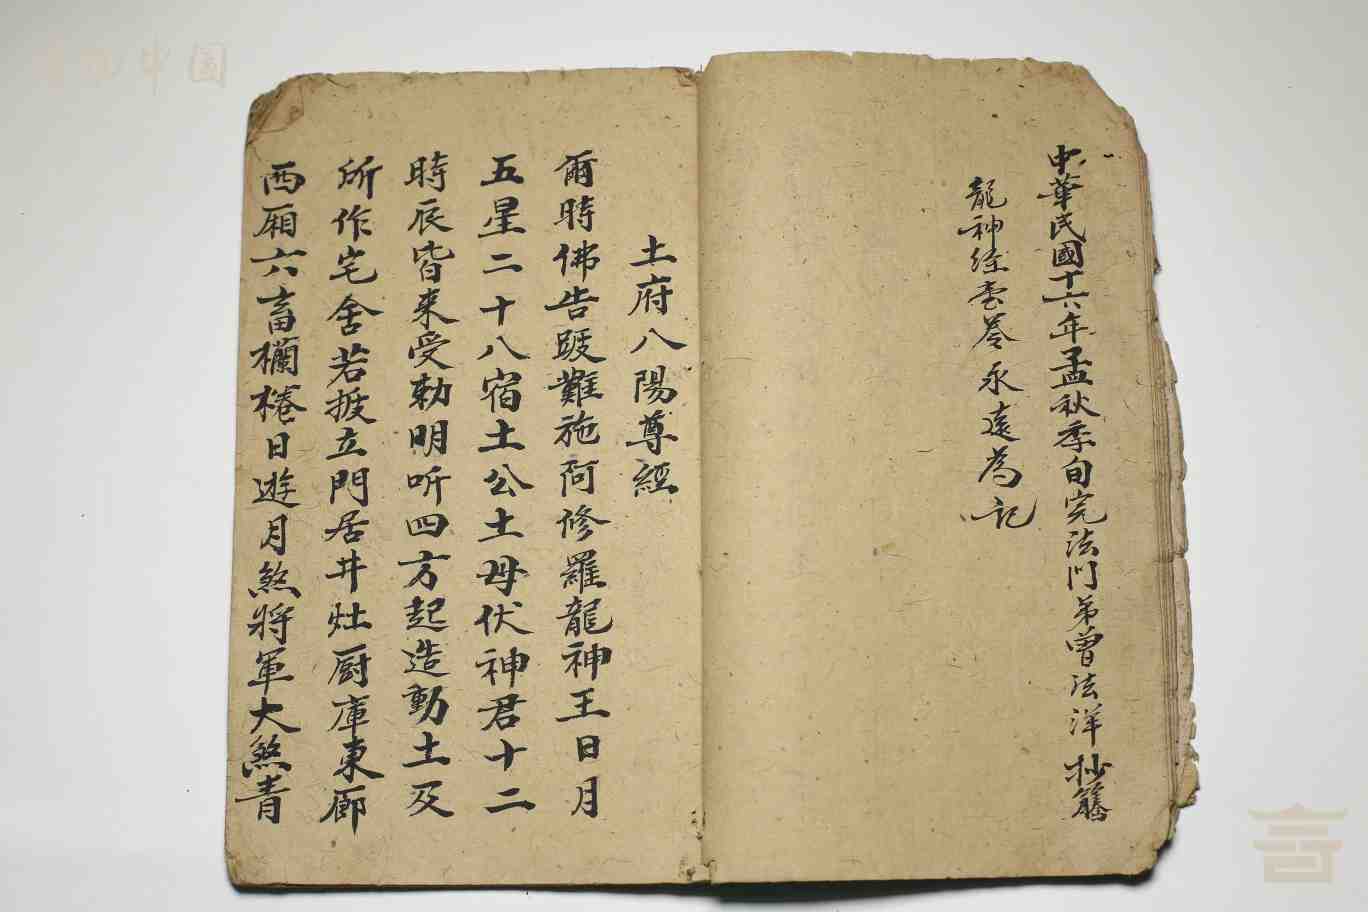 中華民國十六年孟秋季旬完法門弟曾法洋抄籐
龍神經壹卷永遠為記
土府八陽尊經
爾時佛告跋難施阿修羅龍神王日月
五星二十八宿土公土母伏神君十二
時辰皆来受勅明听四方起造動土及
所作宅舍若振立門居井灶厨庫東廊
西廂六畜欄棬日遊月煞將軍大煞青
中国
言